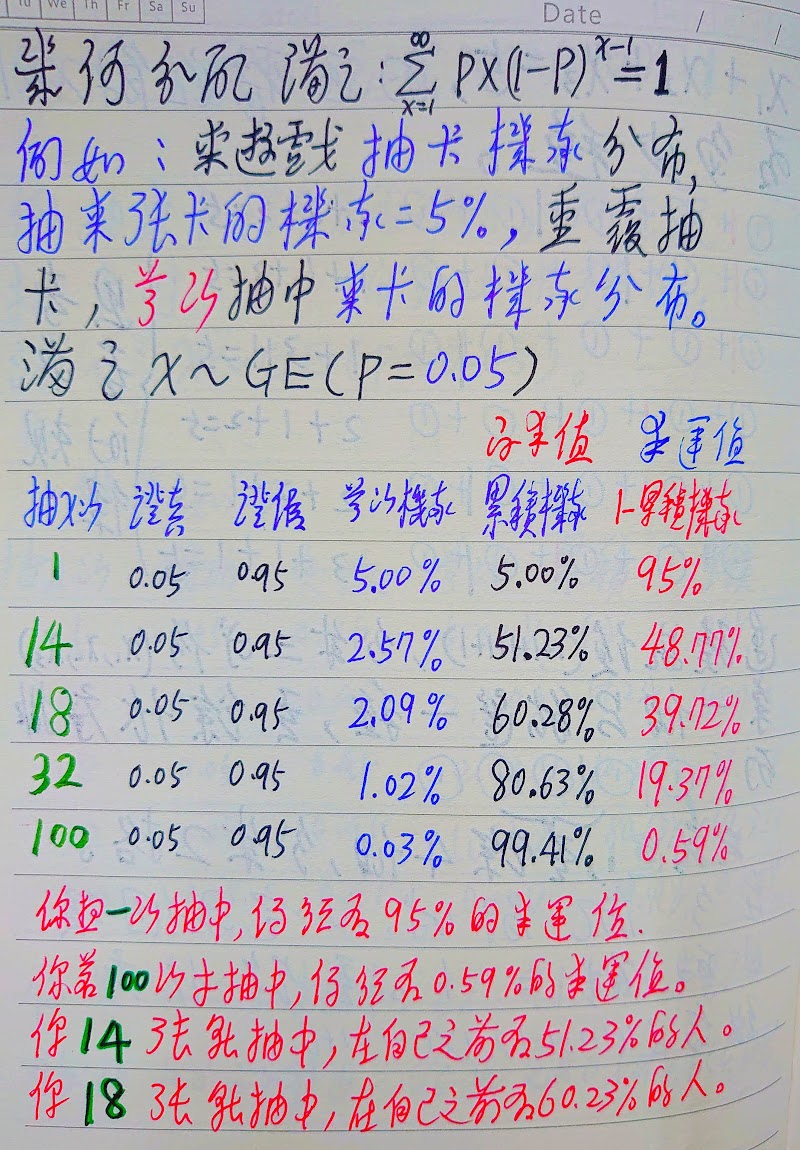 Tu We Th Fr Sa Su Date / /
幾何分配 滿足: ∑_{x=1}^{∞} P×(1-P)^{x-1}=1
例如:某遊戲抽卡機率分布,
抽某張卡的機率=5%,重覆抽
卡,首次抽中某卡的機率分布。
滿足 X~GE(P=0.05)
幸運值
抽X次 證真 證偽 首次機率 累積機率 1-累積機率
1 0.05 0.95 5.00% 5.00% 95%
14 0.05 0.95 2.57% 51.23% 48.77%
18 0.05 0.95 2.09% 60.28% 39.72%
32 0.05 0.95 1.02% 80.63% 19.37%
100 0.05 0.95 0.03% 99.41% 0.59%
你想一次抽中,你須有95%的幸運值.
你若100次才抽中,你須有0.59%的幸運值。
你14張就抽中,在自己之前有51.23%的人。
你18張就抽中,在自己之前有60.23%的人。